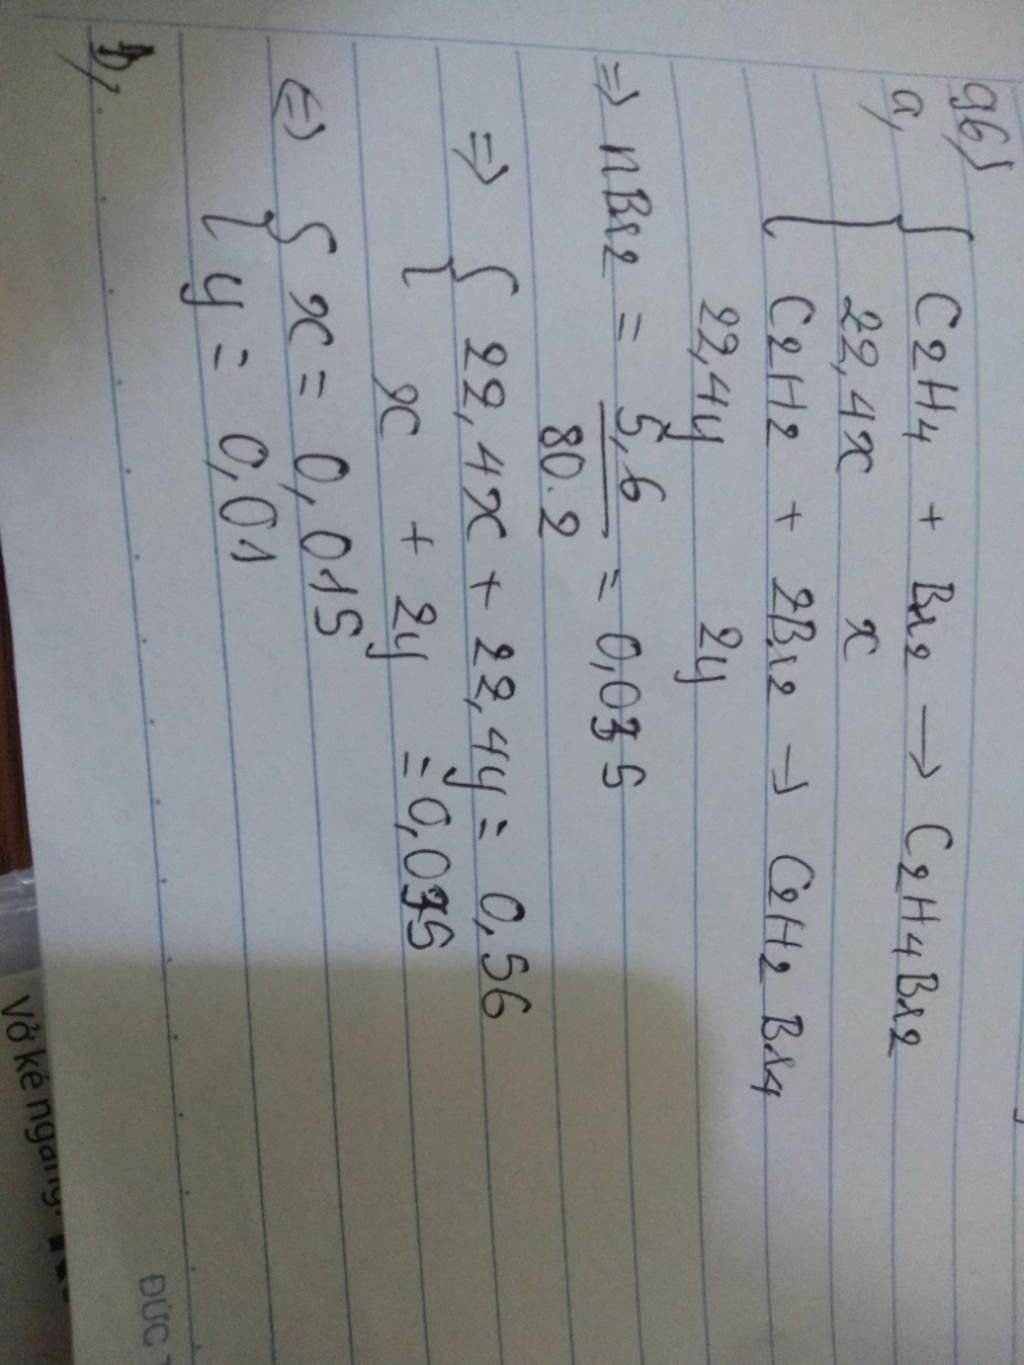 96)
a, { C2H4 + Br2 → C2H4Br2
22,4x x
C2H2 + 2Br2 → C2H2Br4
22,4y 2y
=> nBr2 = 5,6 / 80.2 = 0,035
=> { 22,4x + 22,4y = 0,56
x + 2y = 0,035
<=> { x = 0,015
y = 0,01
b,
Vở kẻ ngang.
ĐỨC